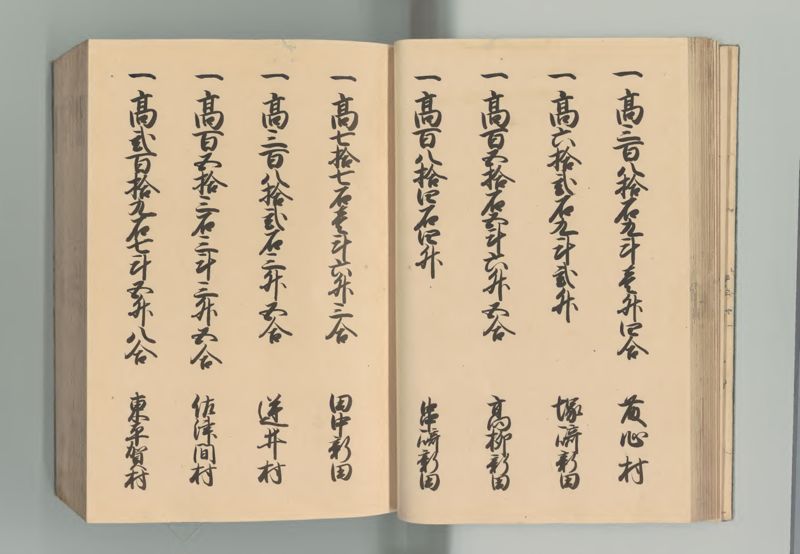 一 高三百八拾石九斗壱升四合 発心村
一 高六拾弐石九斗弐升 塚崎新田
一 高百五拾石五斗六升五合 高柳新田
一 高百八拾四石四升 串崎新田
一 高七拾七石壱斗六升三合 田中新田
一 高三百八拾弐石三升五合 逆井村
一 高百五拾三石三斗三升五合 佐津間村
一 高弐百拾九石七斗五升八合 東平賀村